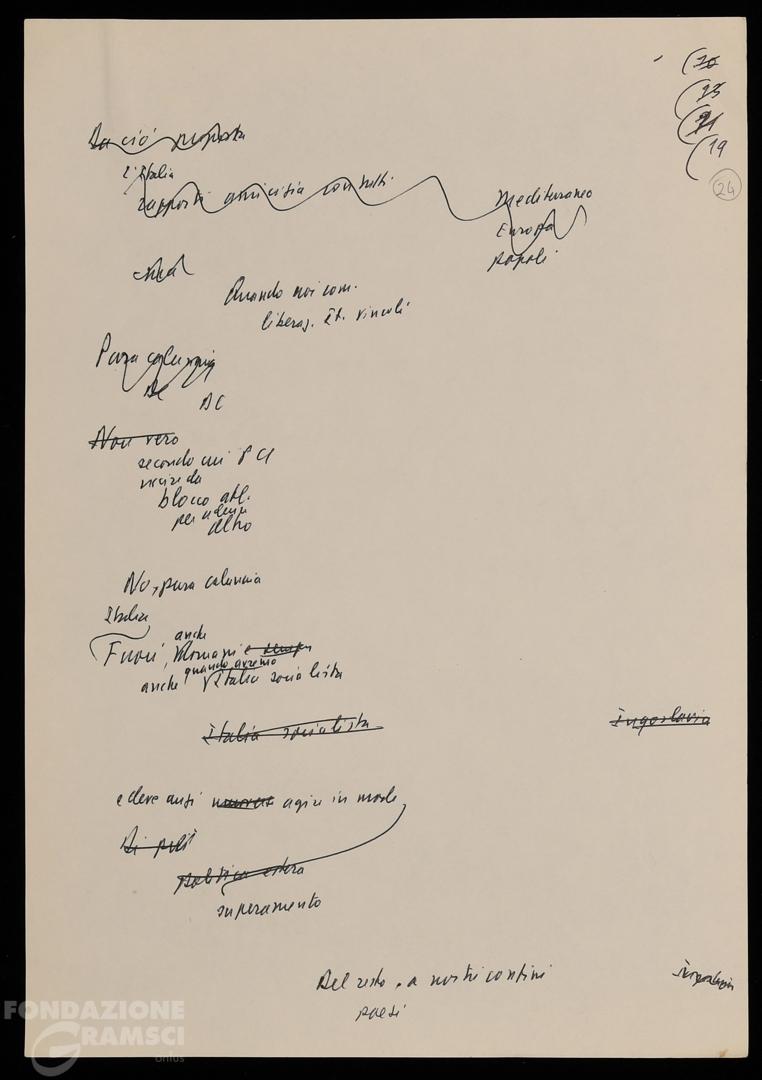 (20
(23
(21
(19
24
Da ciò proposta
l'Italia
rapporti amicizia con tutti
Mediterraneo
Europa
popoli
Quando noi com.
liberaz. It. vincoli
Pura calunnia
DC
DC
Non vero
secondo cui PCI
uscire da
blocco atl.
per aderire
altro
No, pura calunnia
Italia
anche
Fuori, domani e sempre
quando avremo
anche l'Italia socialista
Italia socialista
Iugoslavia
e deve anzi agire in modo
Di poli
politica estera
superamento
Del resto, a nostri confini
Iugoslavia
paesi
FONDAZIONE
GRAMSCI
onlus